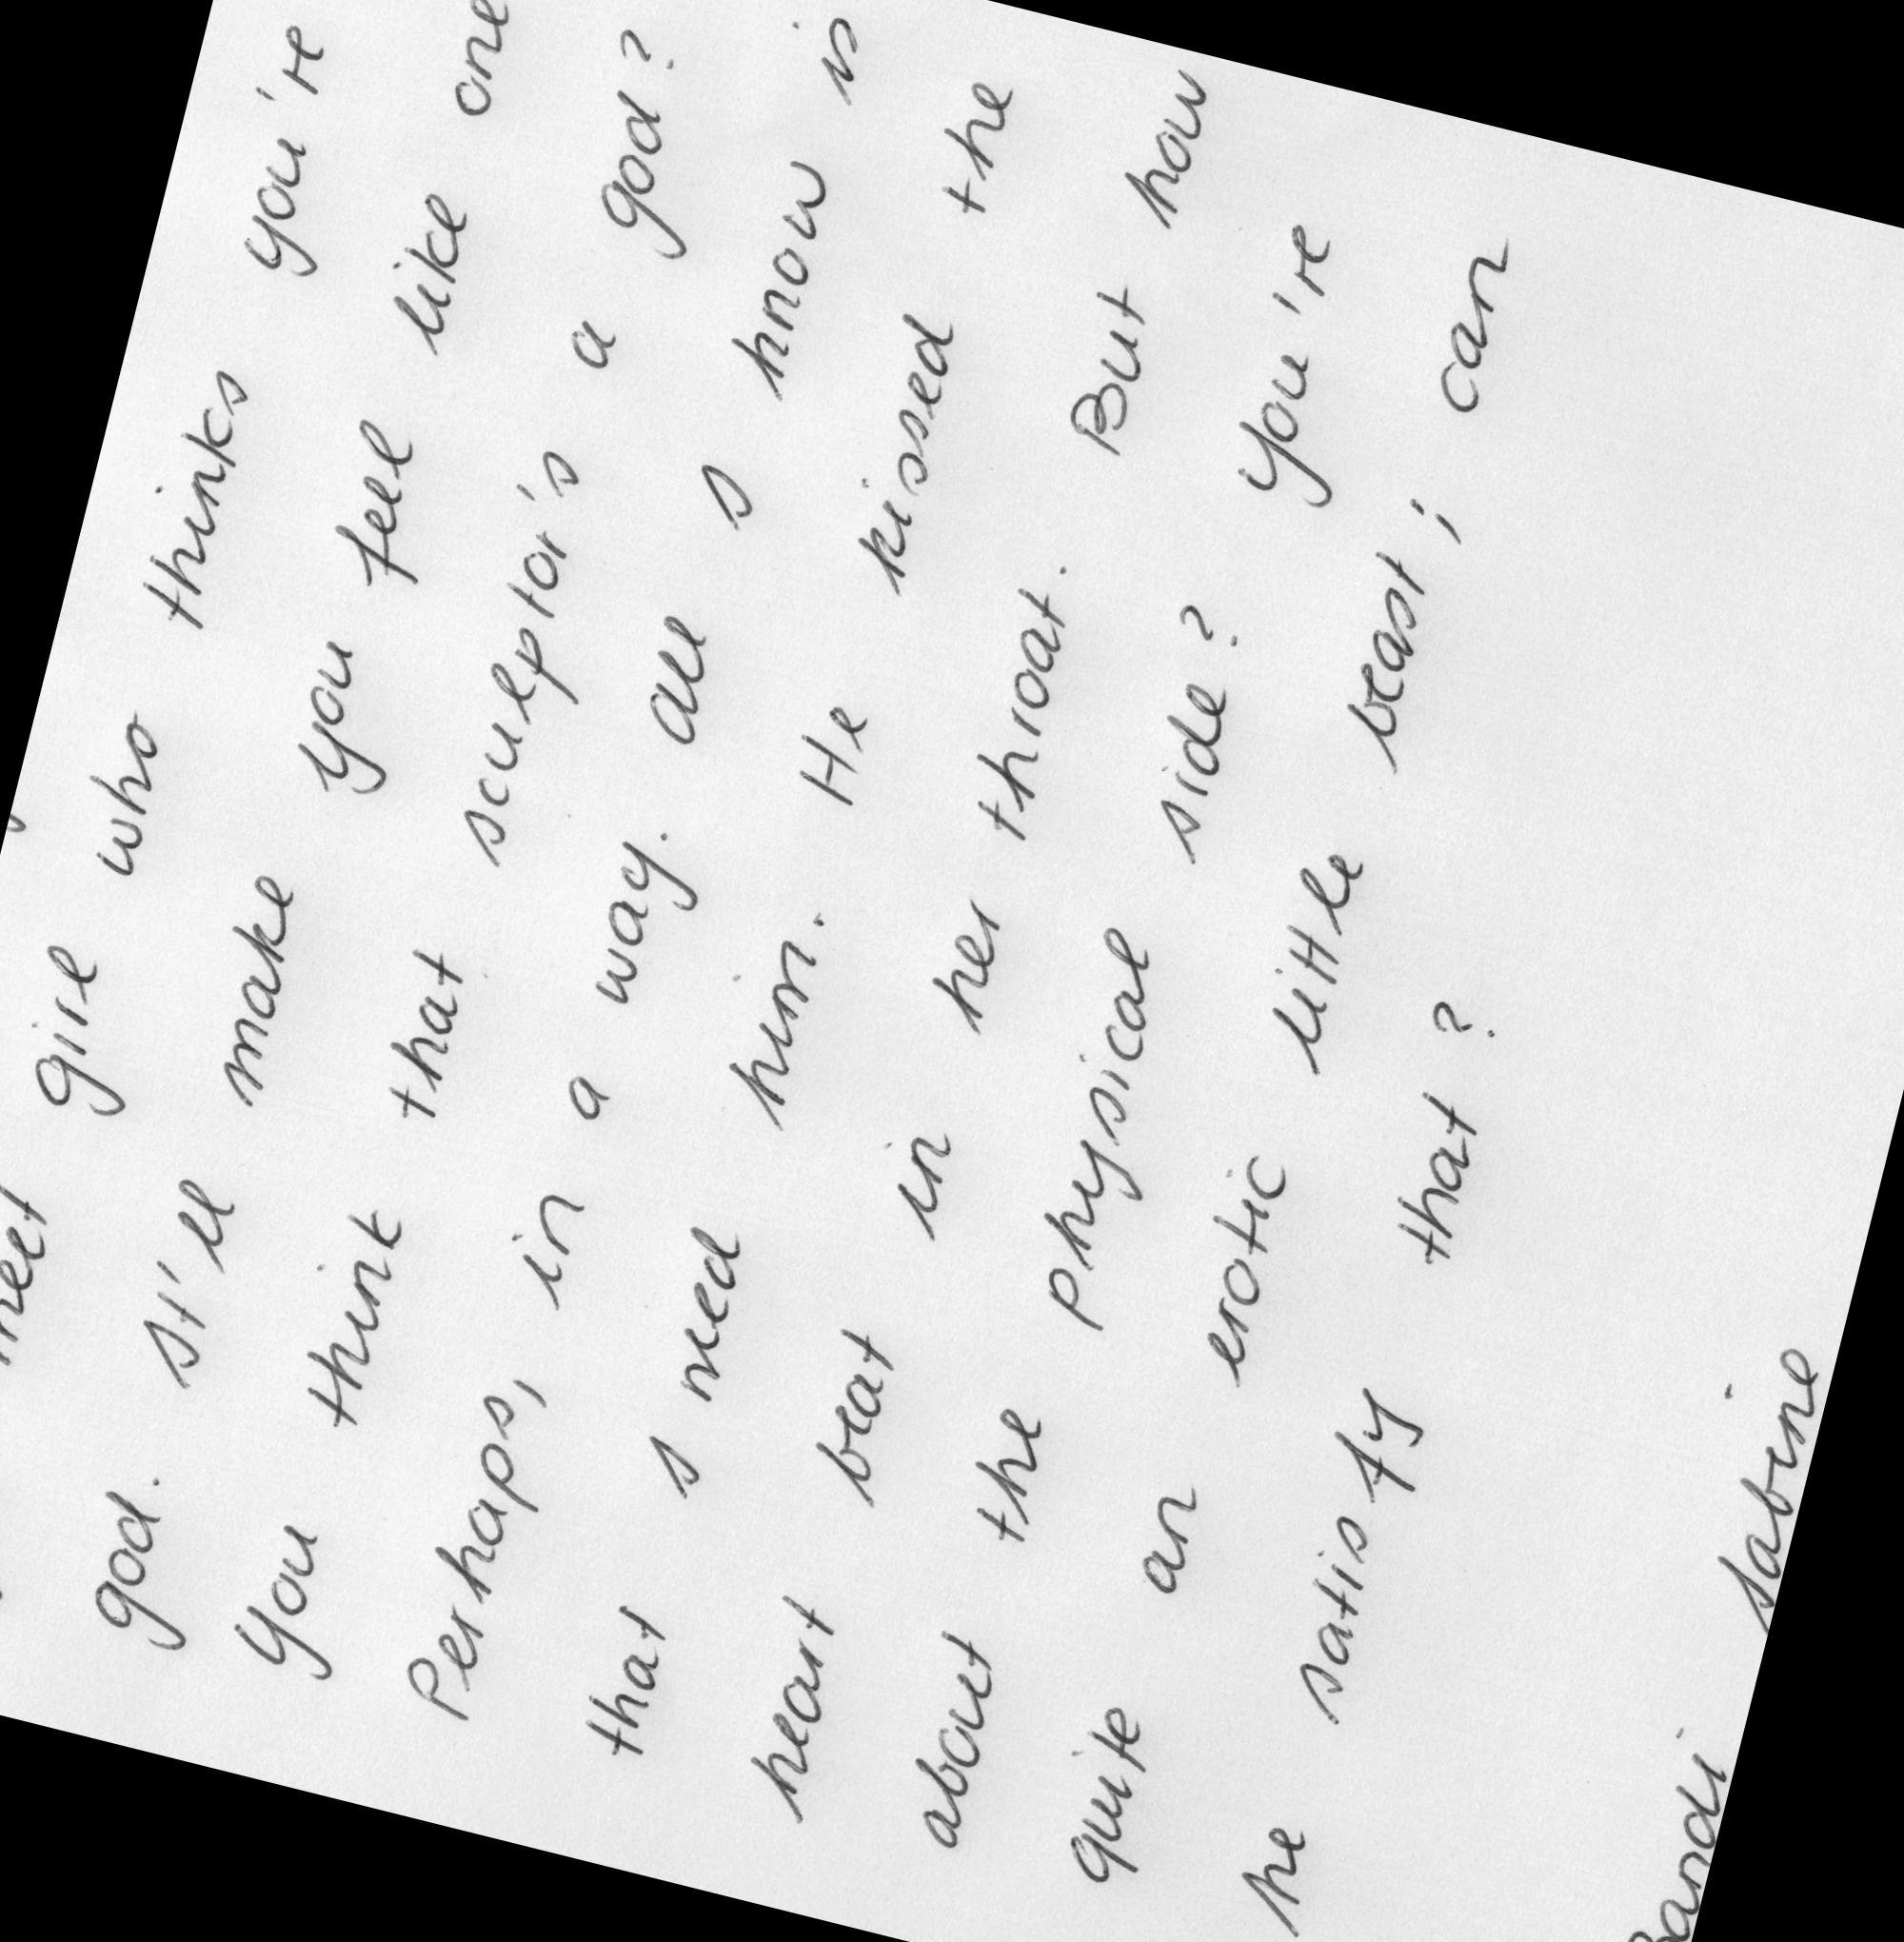 girl who thinks you're
god. It'll make you feel like one
You think that sculptor's a god?
Perhaps, in a way. All I know is
that I need him. He kissed the
heart beat in her throat. But how
about the physical side? You're
quite an erotic little beast; can
he satisfy that?
Sabine